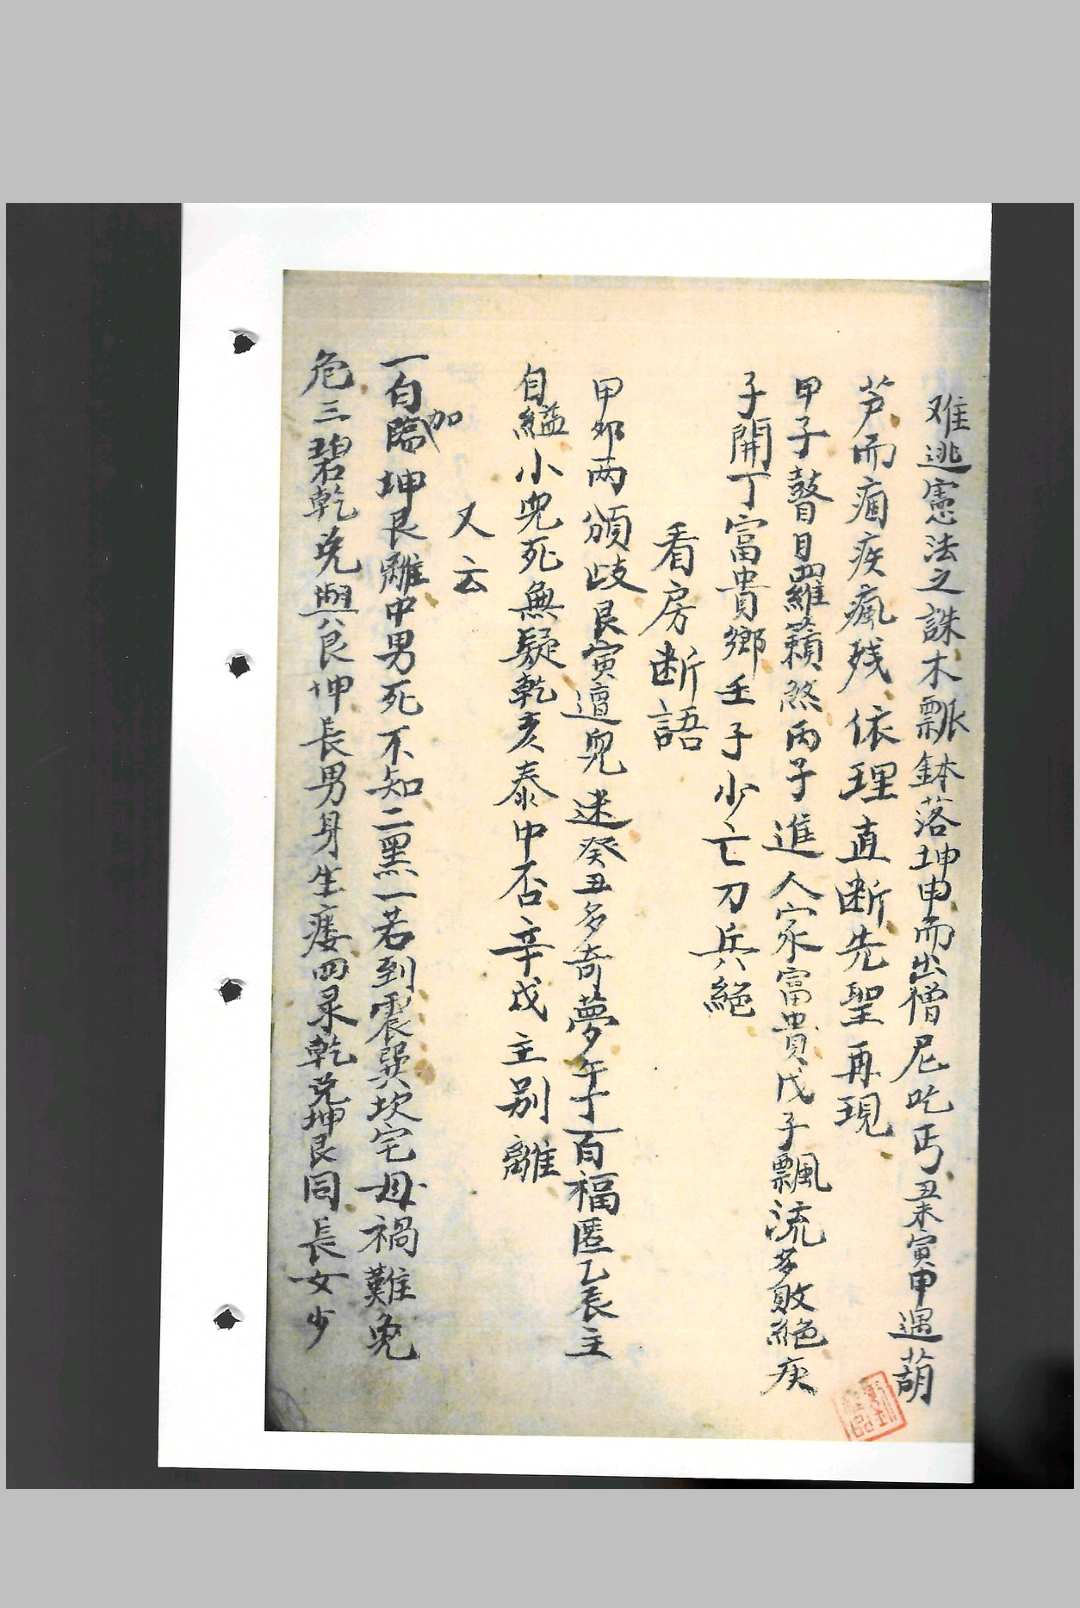 难逃憲法之誅木瓢鉢落坤申而出僧尼吃丐丑未寅申遇葫
芦而痼疾瘋残依理直断先聖再現
甲子瞽目羅籟煞丙子進人家富貴戊子飄流多敗絕庚
子開丁富貴鄉壬子少亡刀兵絕
看房断語
甲卯两頒歧艮寅遭鬼迷癸丑多奇夢午丁百福匿乙辰主
自縊小兒死無疑乾亥泰中否辛戌主别離
又云
一白加臨坤艮離中男死不知二黑一若到震巽坎宅母禍難免
危三碧乾兑與艮坤長男身生瘘四录乾兑坤艮同長女少